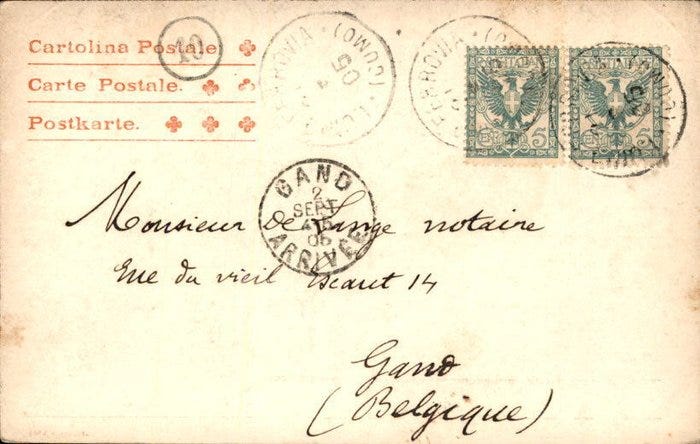 Cartolina Postale
Carte Postale.
Postkarte.
10
(COMO)
05
(COMO)
5
5
GAND
2
SEPT
05
ARRIVÉE
Monsieur De Lange notaire
Rue du vieil escaut 14
Gand
(Belgique)